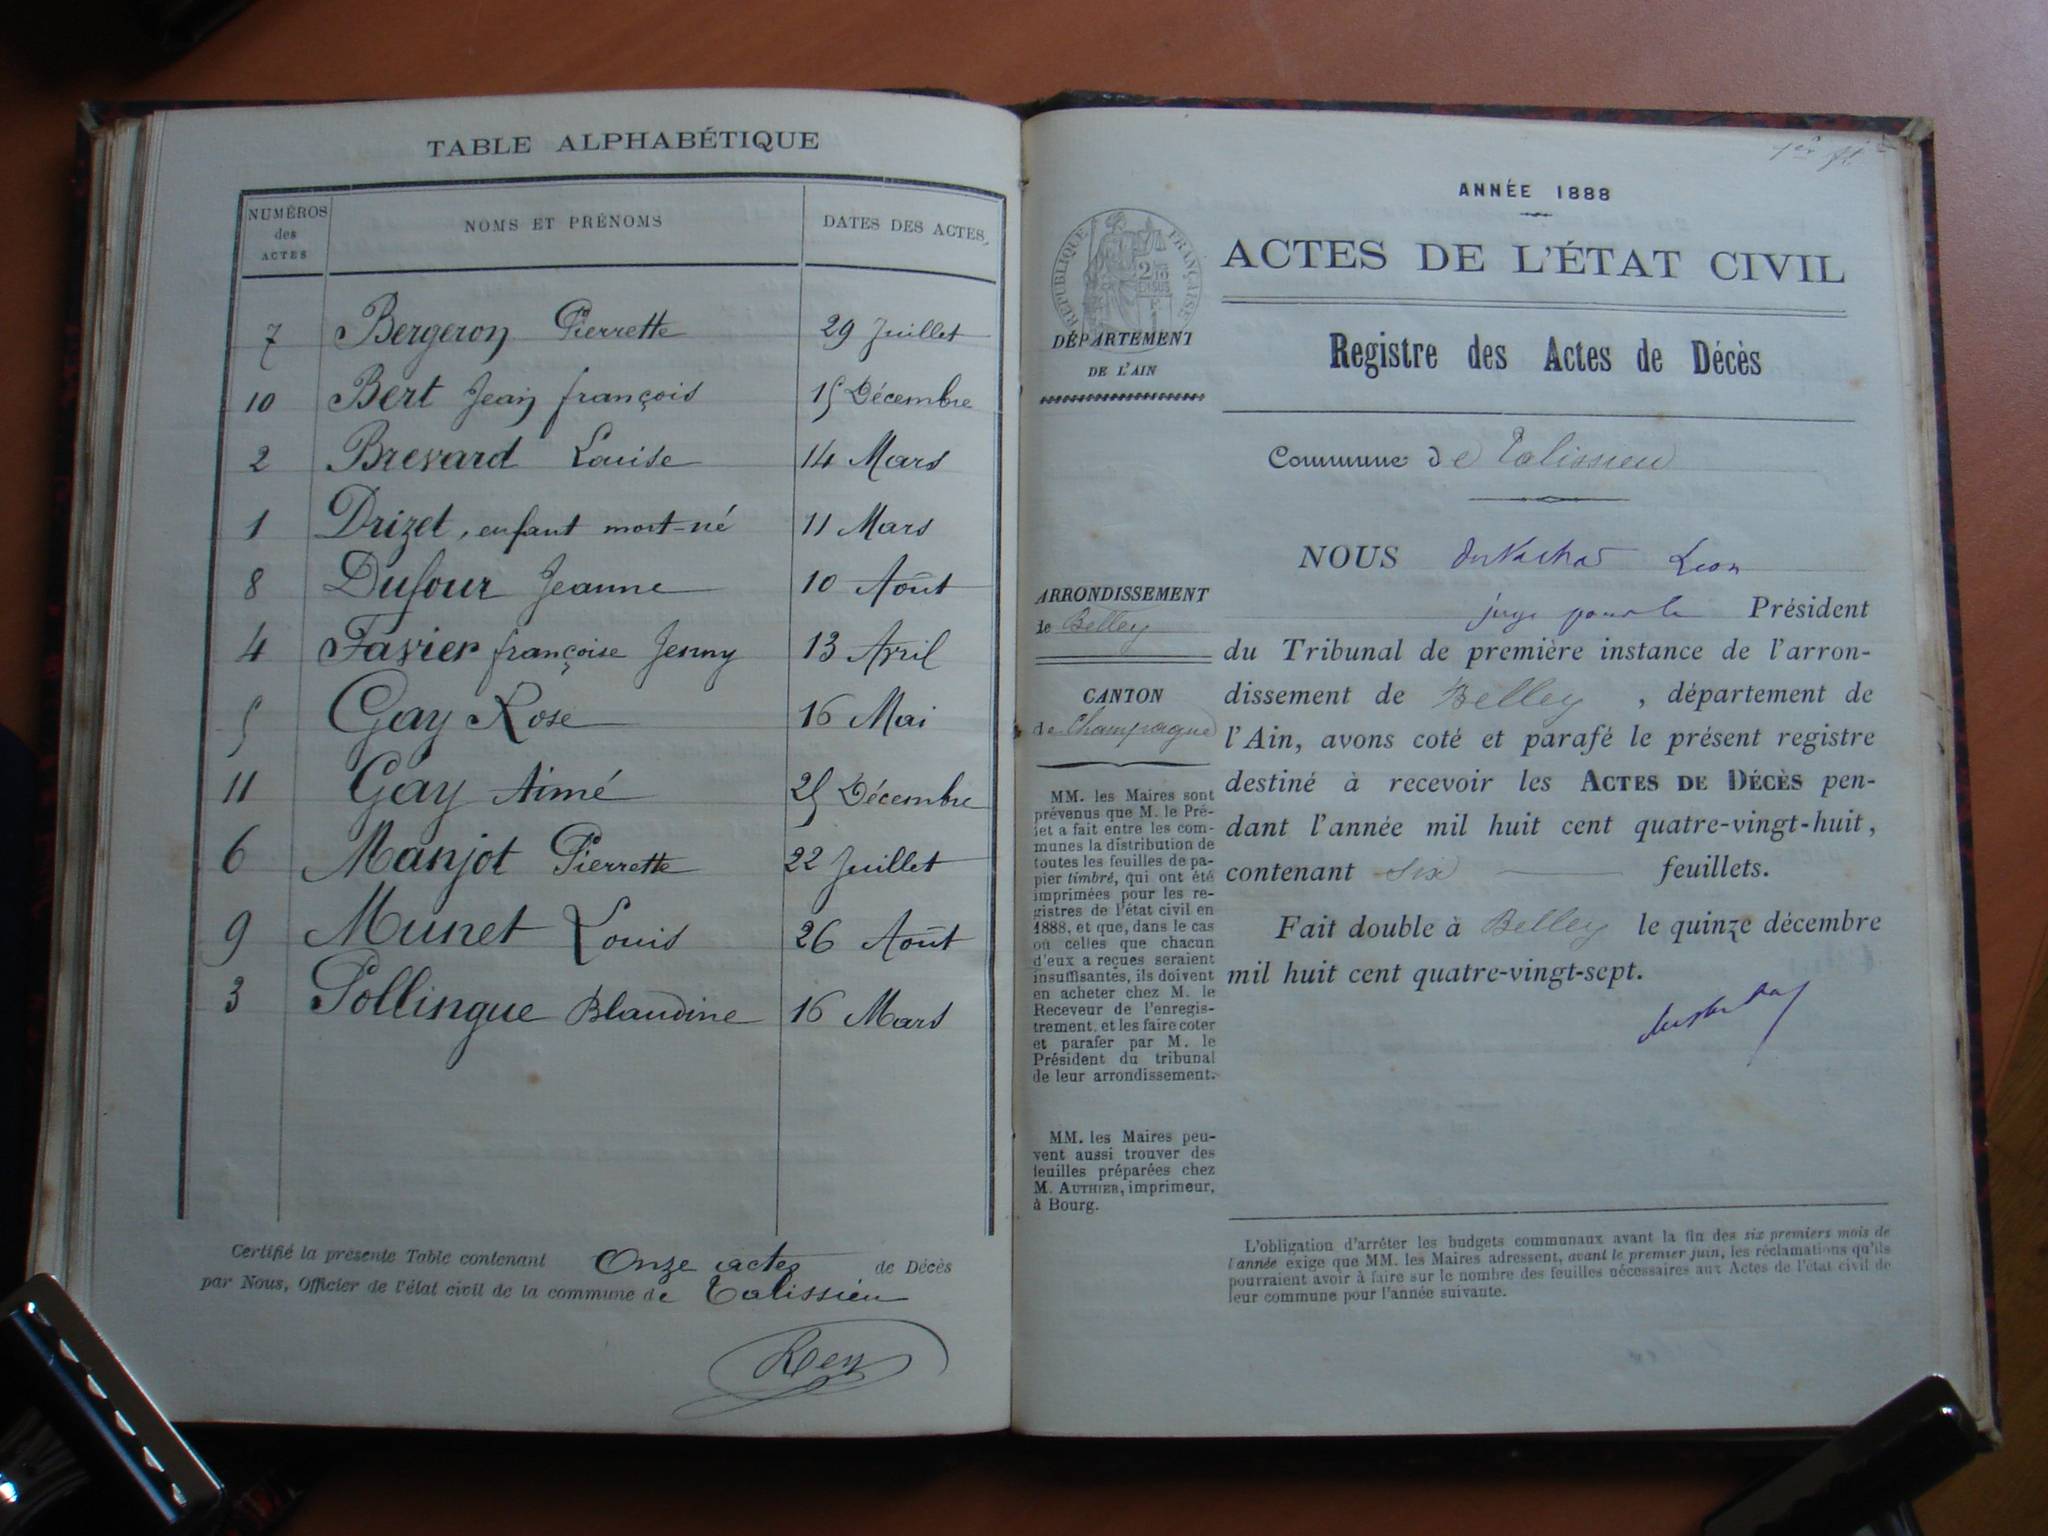 TABLE ALPHABÉTIQUE
NUMÉROS des ACTES NOMS ET PRÉNOMS DATES DES ACTES
7 Bergeron Pierrette 29 Juillet
10 Bert Jean françois 15 Décembre
2 Brevard Louise 14 Mars
1 Drizet, enfant mort-né 11 Mars
8 Dufour Jeanne 10 Août
4 Favier françoise Jenny 13 Avril
5 Gay Rose 16 Mai
11 Gay Aimé 25 Décembre
6 Manjot Pierrette 22 Juillet
9 Munet Louis 26 Août
3 Pollingue Blandine 16 Mars
Certifié la présente Table contenant Onze actes de Décès
par Nous, Officier de l'état civil de la commune de Talissieu
Rey
RÉPUBLIQUE FRANÇAISE
DÉPARTEMENT
DE L'AIN
ARRONDISSEMENT
de Belley
CANTON
de Champagne
MM. les Maires sont
prévenus que M. le Pré-
fet a fait entre les com-
munes la distribution de
toutes les feuilles de pa-
pier timbré, qui ont été
imprimées pour les re-
gistres de l'état civil en
1888, et que, dans le cas
où celles que chacun
d'eux a reçues seraient
insuffisantes, ils doivent
en acheter chez M. le
Receveur de l'enregis-
trement, et les faire coter
et parafer par M. le
Président du tribunal
de leur arrondissement.
MM. les Maires peu-
vent aussi trouver des
feuilles préparées chez
M. AUTHIER, imprimeur,
à Bourg.
ANNÉE 1888
ACTES DE L'ÉTAT CIVIL
Registre des Actes de Décès
Commune de Talissieu
NOUS Léon
juge pour le Président
du Tribunal de première instance de l'arron-
dissement de Belley, département de
l'Ain, avons coté et parafé le présent registre
destiné à recevoir les ACTES DE DÉCÈS pen-
dant l'année mil huit cent quatre-vingt-huit,
contenant six feuillets.
Fait double à Belley le quinze décembre
mil huit cent quatre-vingt-sept.
L'obligation d'arrêter les budgets communaux avant la fin des six premiers mois de
l'année exige que MM. les Maires adressent, avant le premier juin, les réclamations qu'ils
pourraient avoir à faire sur le nombre des feuilles nécessaires aux Actes de l'état civil de
leur commune pour l'année suivante.